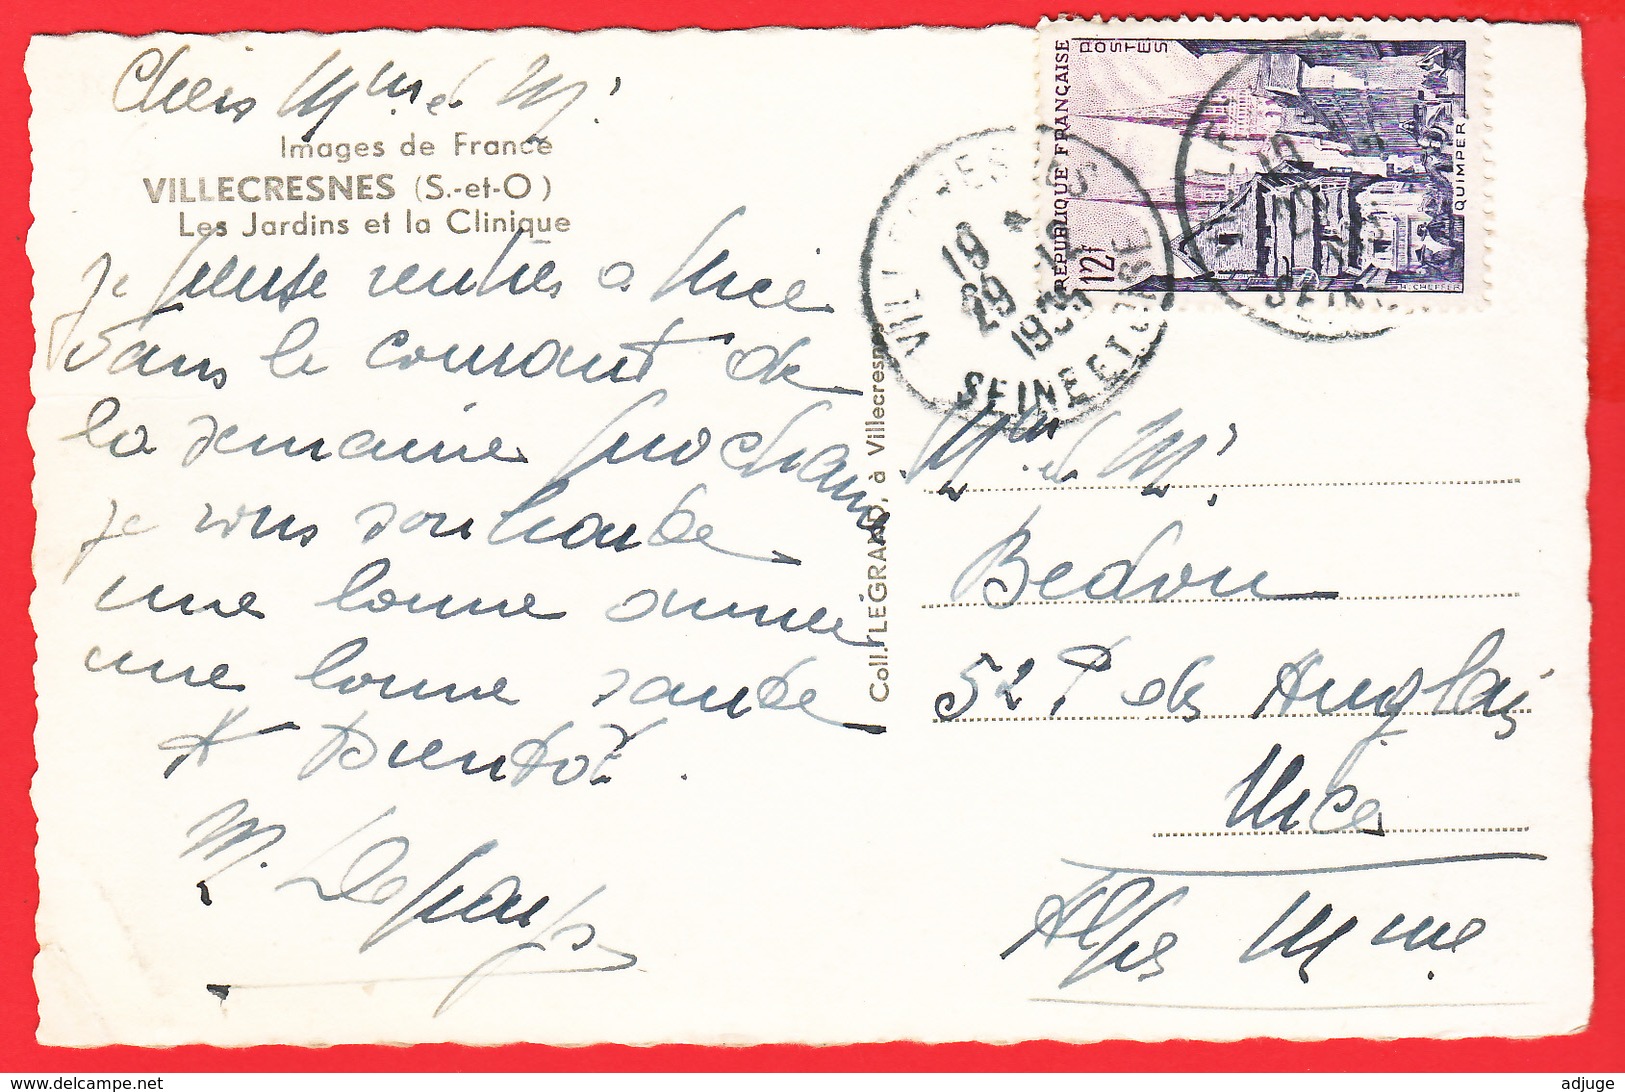 Chers Mme et Mr
Images de France
VILLECRESNES (S.-et-O)
Les Jardins et la Clinique
je pense rentrer a Nice
dans le courant de
la semaine prochaine
je vous souhaite
une bonne année
une bonne sante
A Bientôt.
M.
Coll. LEGRAND, à Villecresnes
REPUBLIQUE FRANÇAISE
POSTES
12f
QUIMPER
H. CHEFFER
VILLECRESNES
19 *
29 -12
SEINE ET OISE
Mme et Mr
Bedou
52 P. des Anglais
Nice
Alpes Mme
adjuge